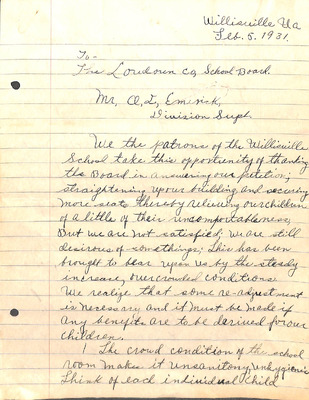 Willisville Va
Feb. 5. 1931.
To-
The Loudoun Co, School Board.
Mr, O, L, Emerick,
Division Supt.
We the patrons of the Willisville
School take this opportunity of thanking
the Board in answering our petition;
straightening up our building and securing
more seats thereby relieving our children
of a little of their uncomfortableness;
But we are not satisfied; we are still
desirous of somethings; This has been
brought to bear upon us by the steady
increase, overcrowded conditions.
We realize that some re-adjustment
is necessary and it must be made if
any benefits are to be derived for our
children.
1 The crowd condition of the school
room makes it unsanitory, unhygienic
Think of each individual child